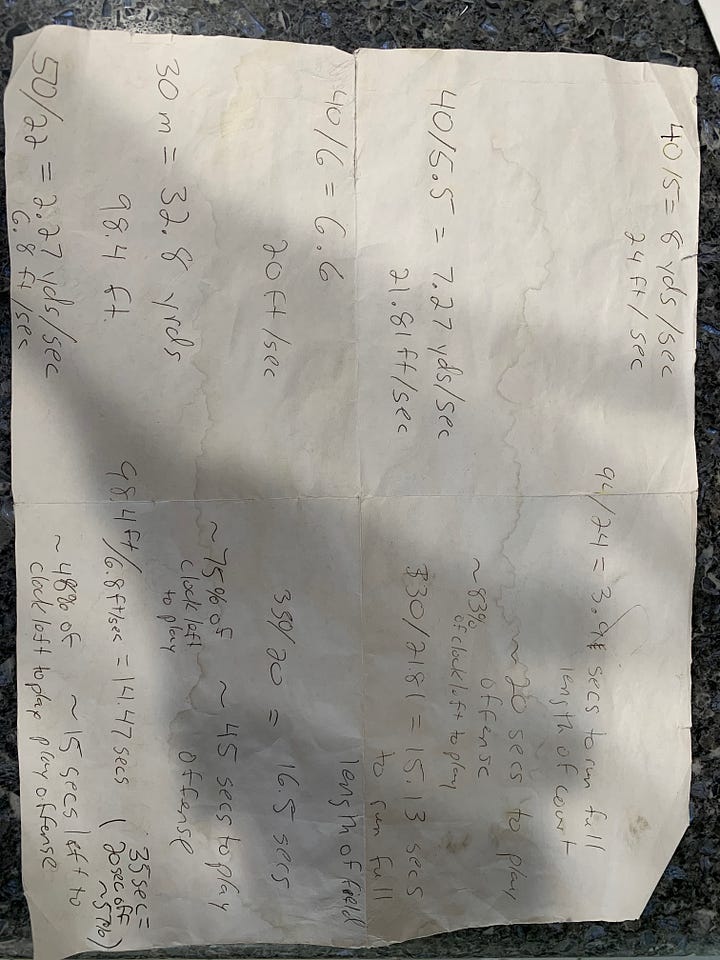 40/5 = 8 yds/sec
24 ft/sec
94/24 = 3.94 secs to run full
length of court
~20 secs to play
offense
~83%
of clock left to play
40/5.5 = 7.27 yds/sec
21.81 ft/sec
330/2181 = 15.13 secs
to run full
length of field
40/6 = 6.6
20 ft/sec
330/20 = 16.5 secs
~45 secs to play
offense
~75% of
clock left
to play
30 m = 32.8 yrds
98.4 ft
98.4 ft/6.8 ft/sec = 14.47 secs
(35 sec =
20 sec off
~57%)
50/22 = 2.27 yds/sec
6.8 ft/sec
~15 secs left to
play offense
~48% of
clock left to play